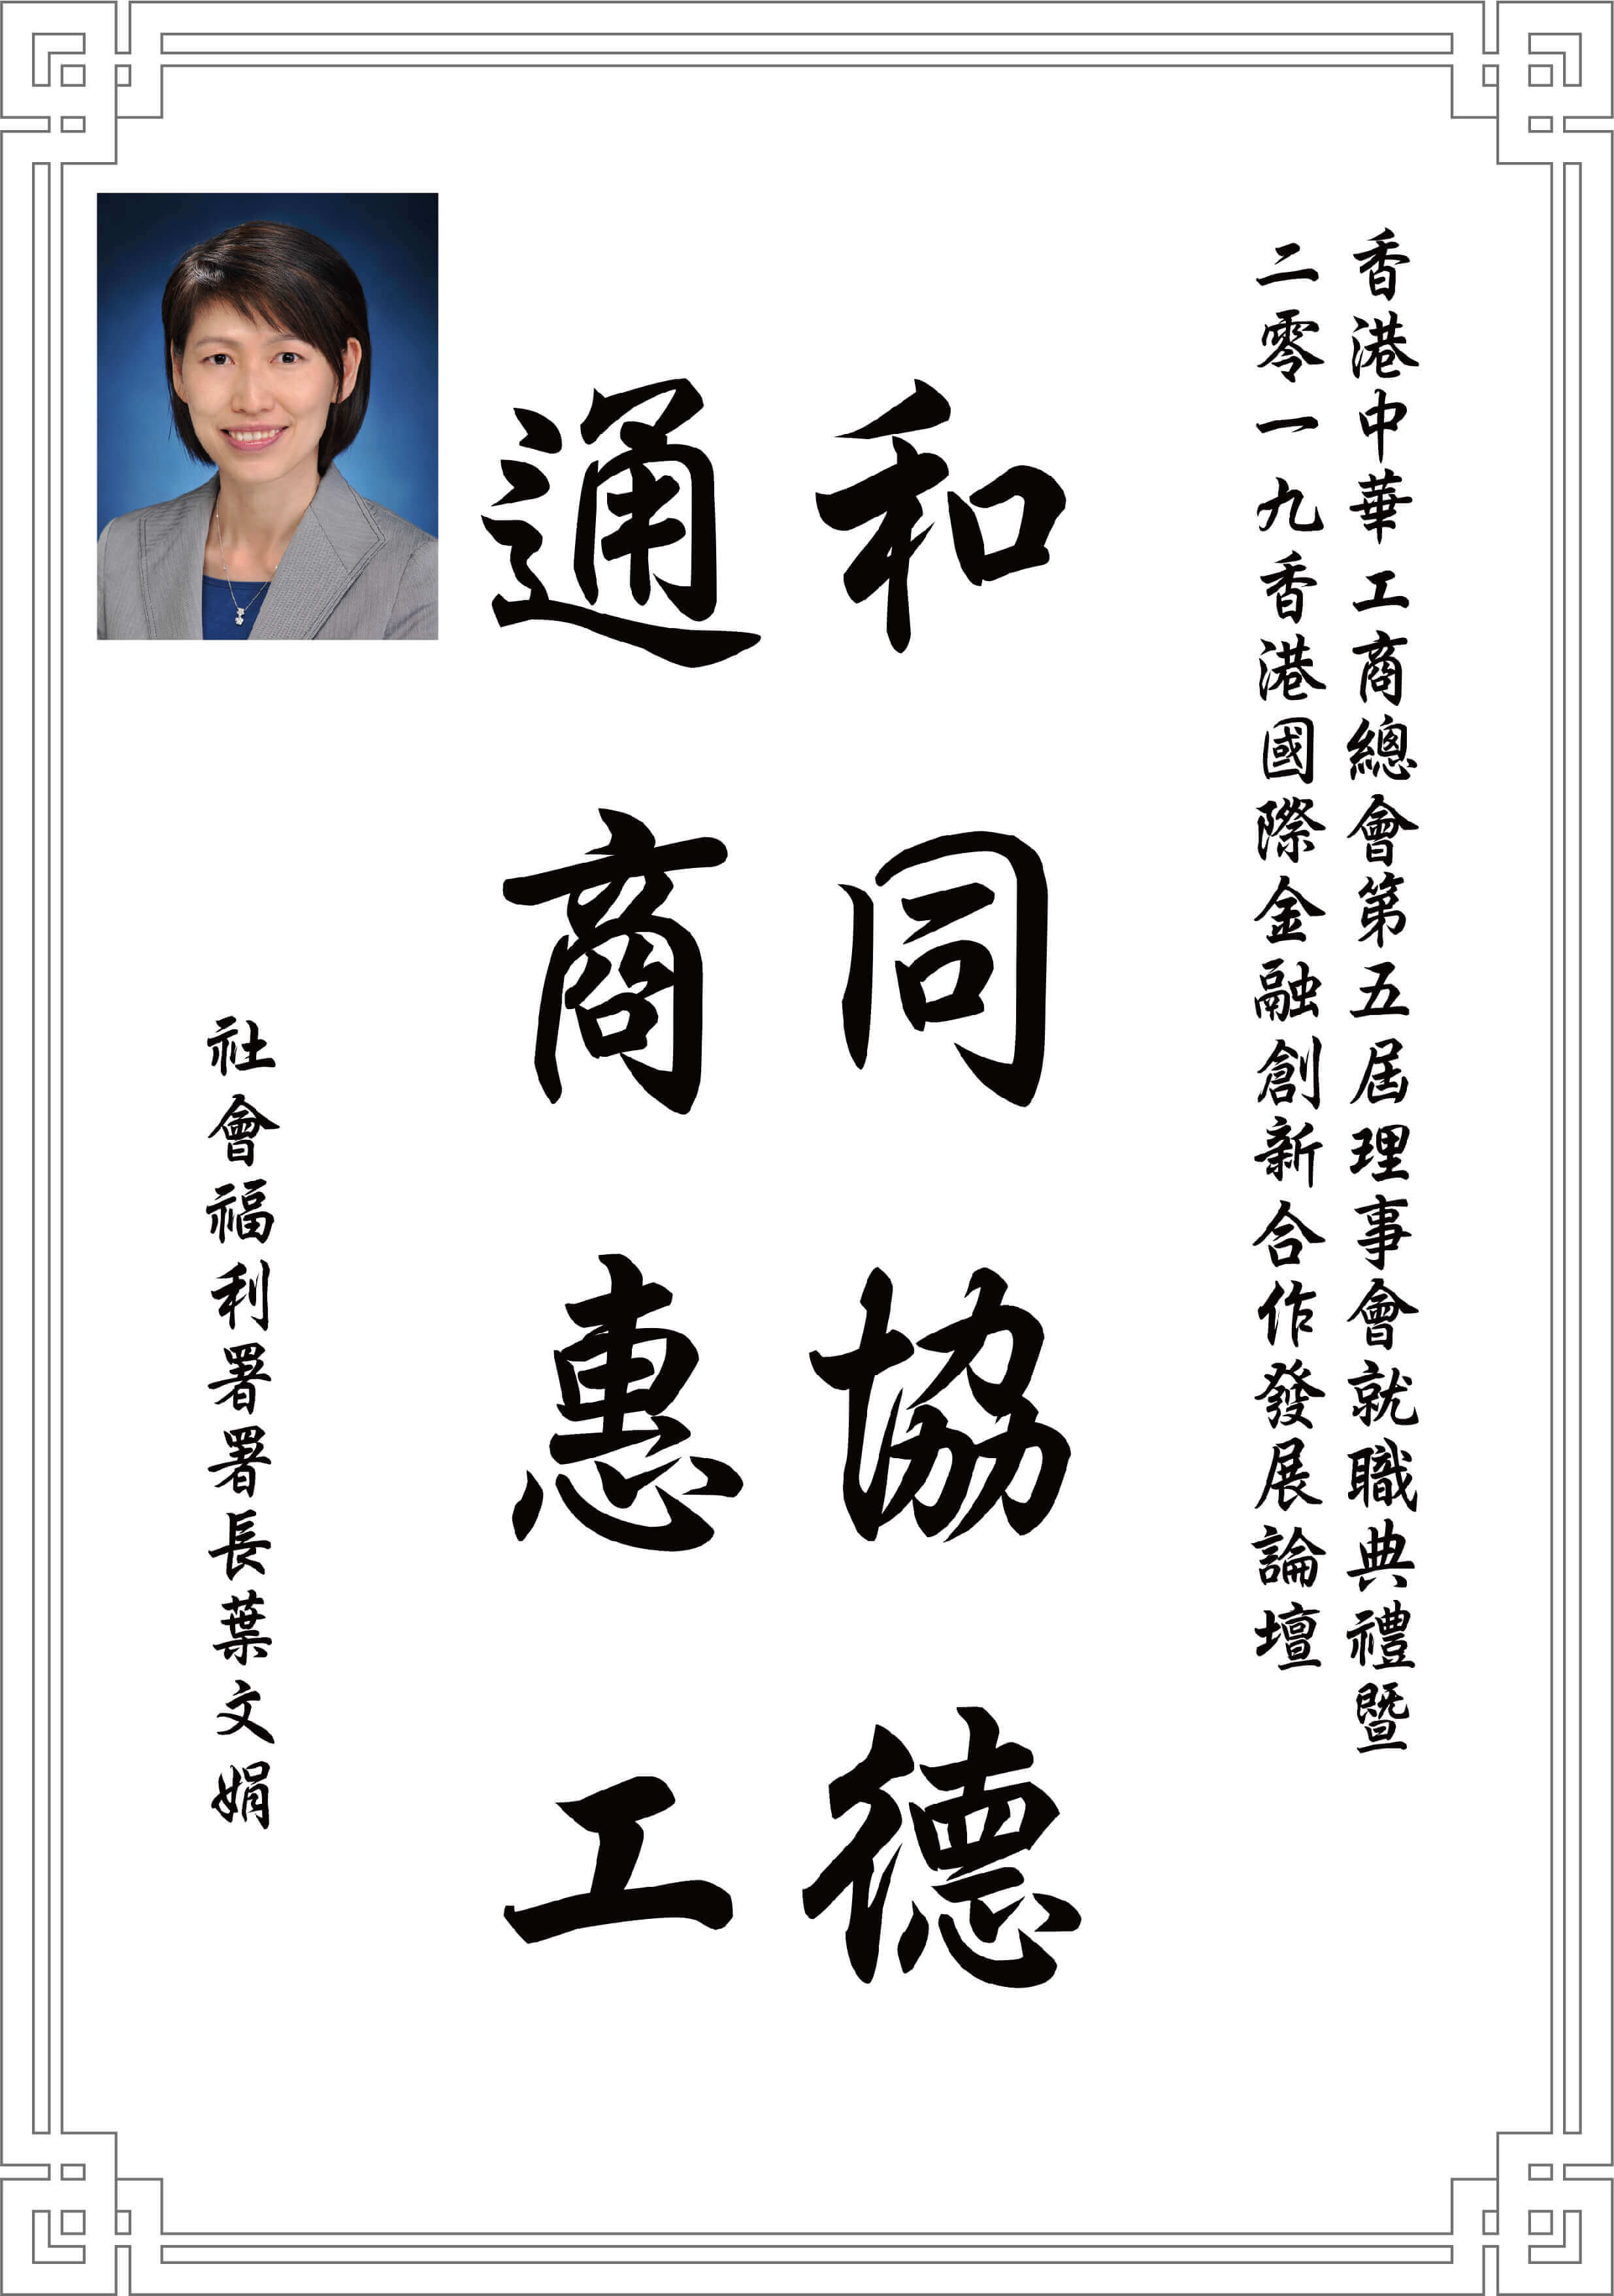 香港中華工商總會第五屆理事會就職典禮暨
二零一九香港國際金融創新合作發展論壇
和同協德
通商惠工
社會福利署署長葉文娟